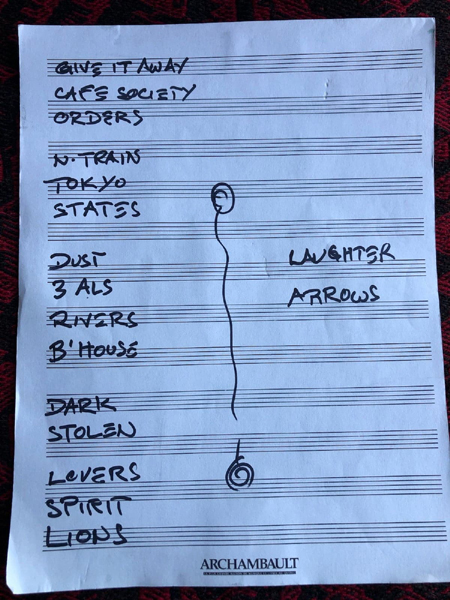 GIVE IT AWAY
CAFE SOCIETY
ORDERS
N·TRAIN
TOKYO
STATES
DUST
3 ALS
RIVERS
B'HOUSE
DARK
STOLEN
LOVERS
SPIRIT
LIONS
LAUGHTER
ARROWS
ARCHAMBAULT